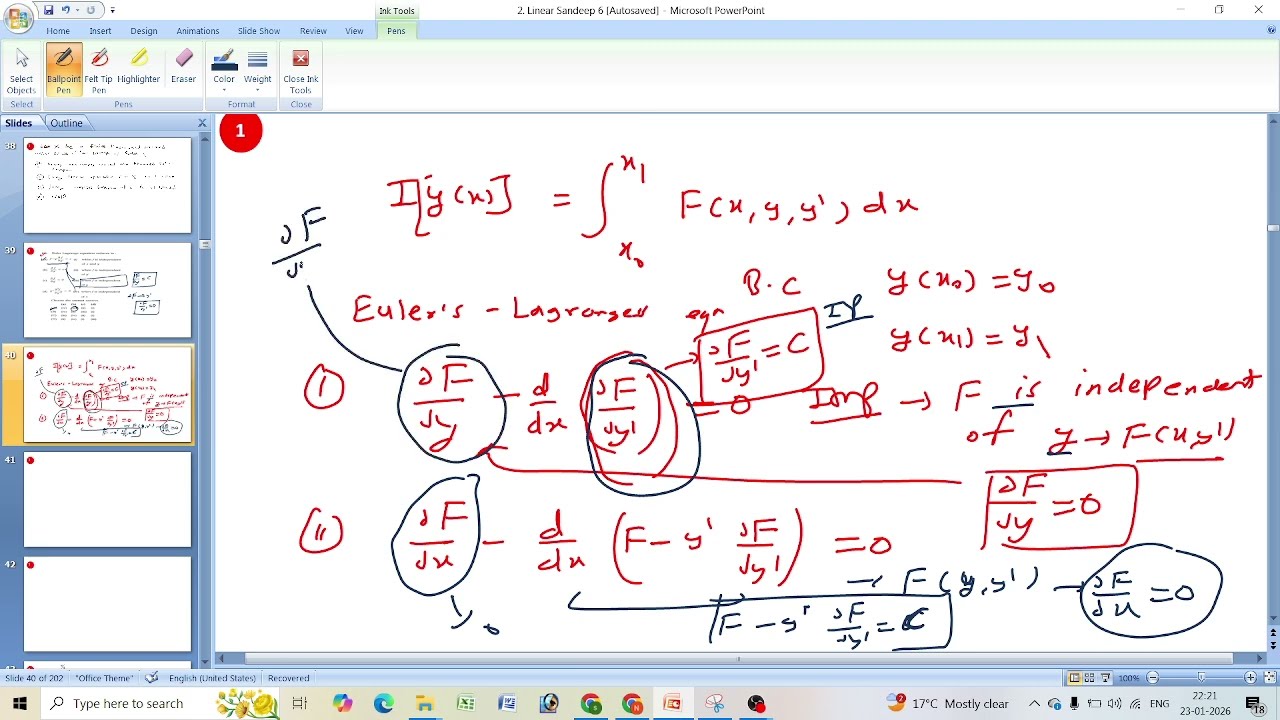 Ink Tools
2. Linear Sandeep 6 [Autosaved] - Microsoft PowerPoint
Home Insert Design Animations Slide Show Review View Pens
Select Objects
Ballpoint Pen
Felt Tip Pen
Highlighter
Eraser
Color
Weight
Close Ink Tools
Select Pens Format Close
Slides Outline
38
39
40
41
42
1
I[y(x)] = ∫_{x₀}^{x₁} F(x, y, y') dx
∂F
B.C y(x₀) = y₀
Euler's - Lagranges eqn
y(x₁) = y₁
(i) ∂F/∂y - d/dx (∂F/∂y') = 0
→ ∂F/∂y' = C
Imp → F is independent
of y → F(x, y')
∂F/∂y = 0
(ii) ∂F/∂x - d/dx (F - y' ∂F/∂y') = 0
→ F(y, y') → ∂F/∂x = 0
F - y' ∂F/∂y' = C
Slide 40 of 202 "Office Theme" English (United States) Recovered 100%
Type here to search
17°C Mostly clear
22:21
23-01-2026
18